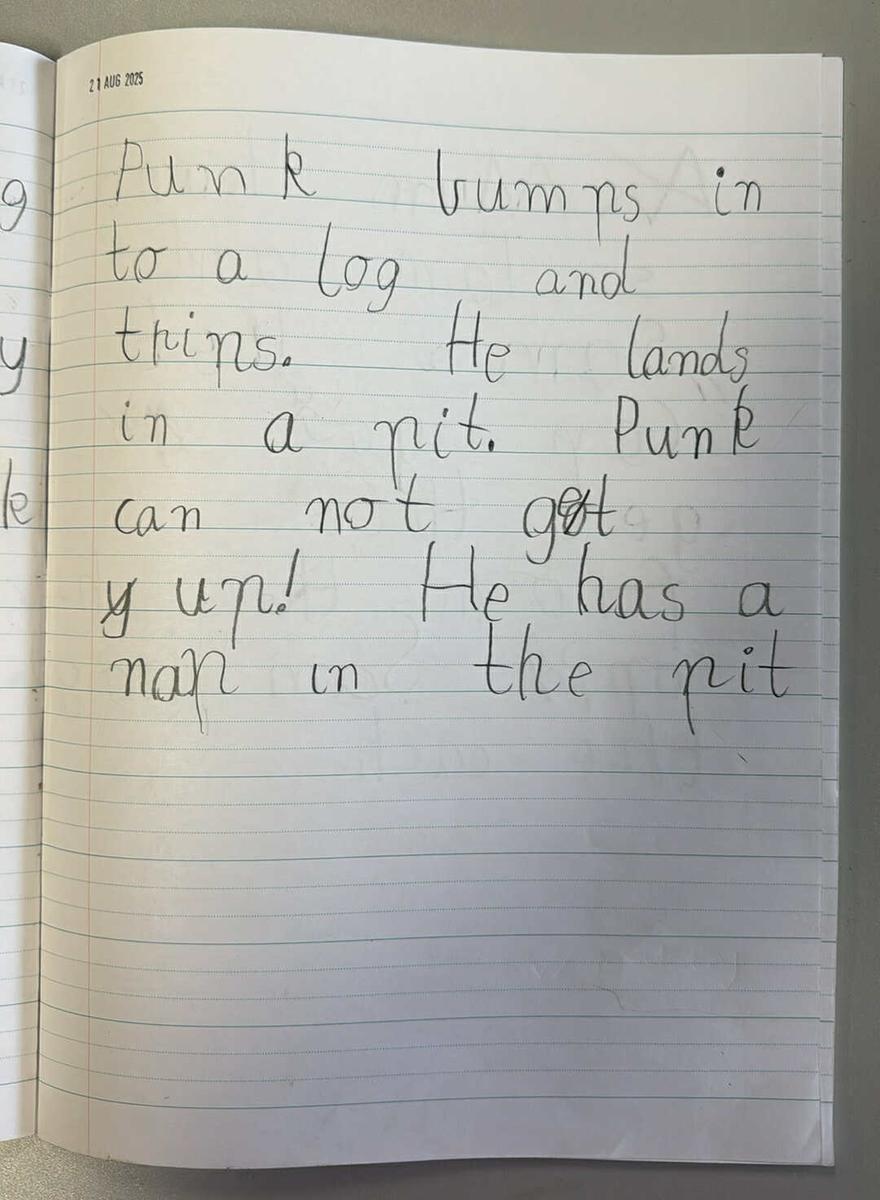 21 AUG 2025
g
y
k
Punk bumps in
to a log and
trips. He lands
in a pit. Punk
can not get
y up! He has a
nap in the pit